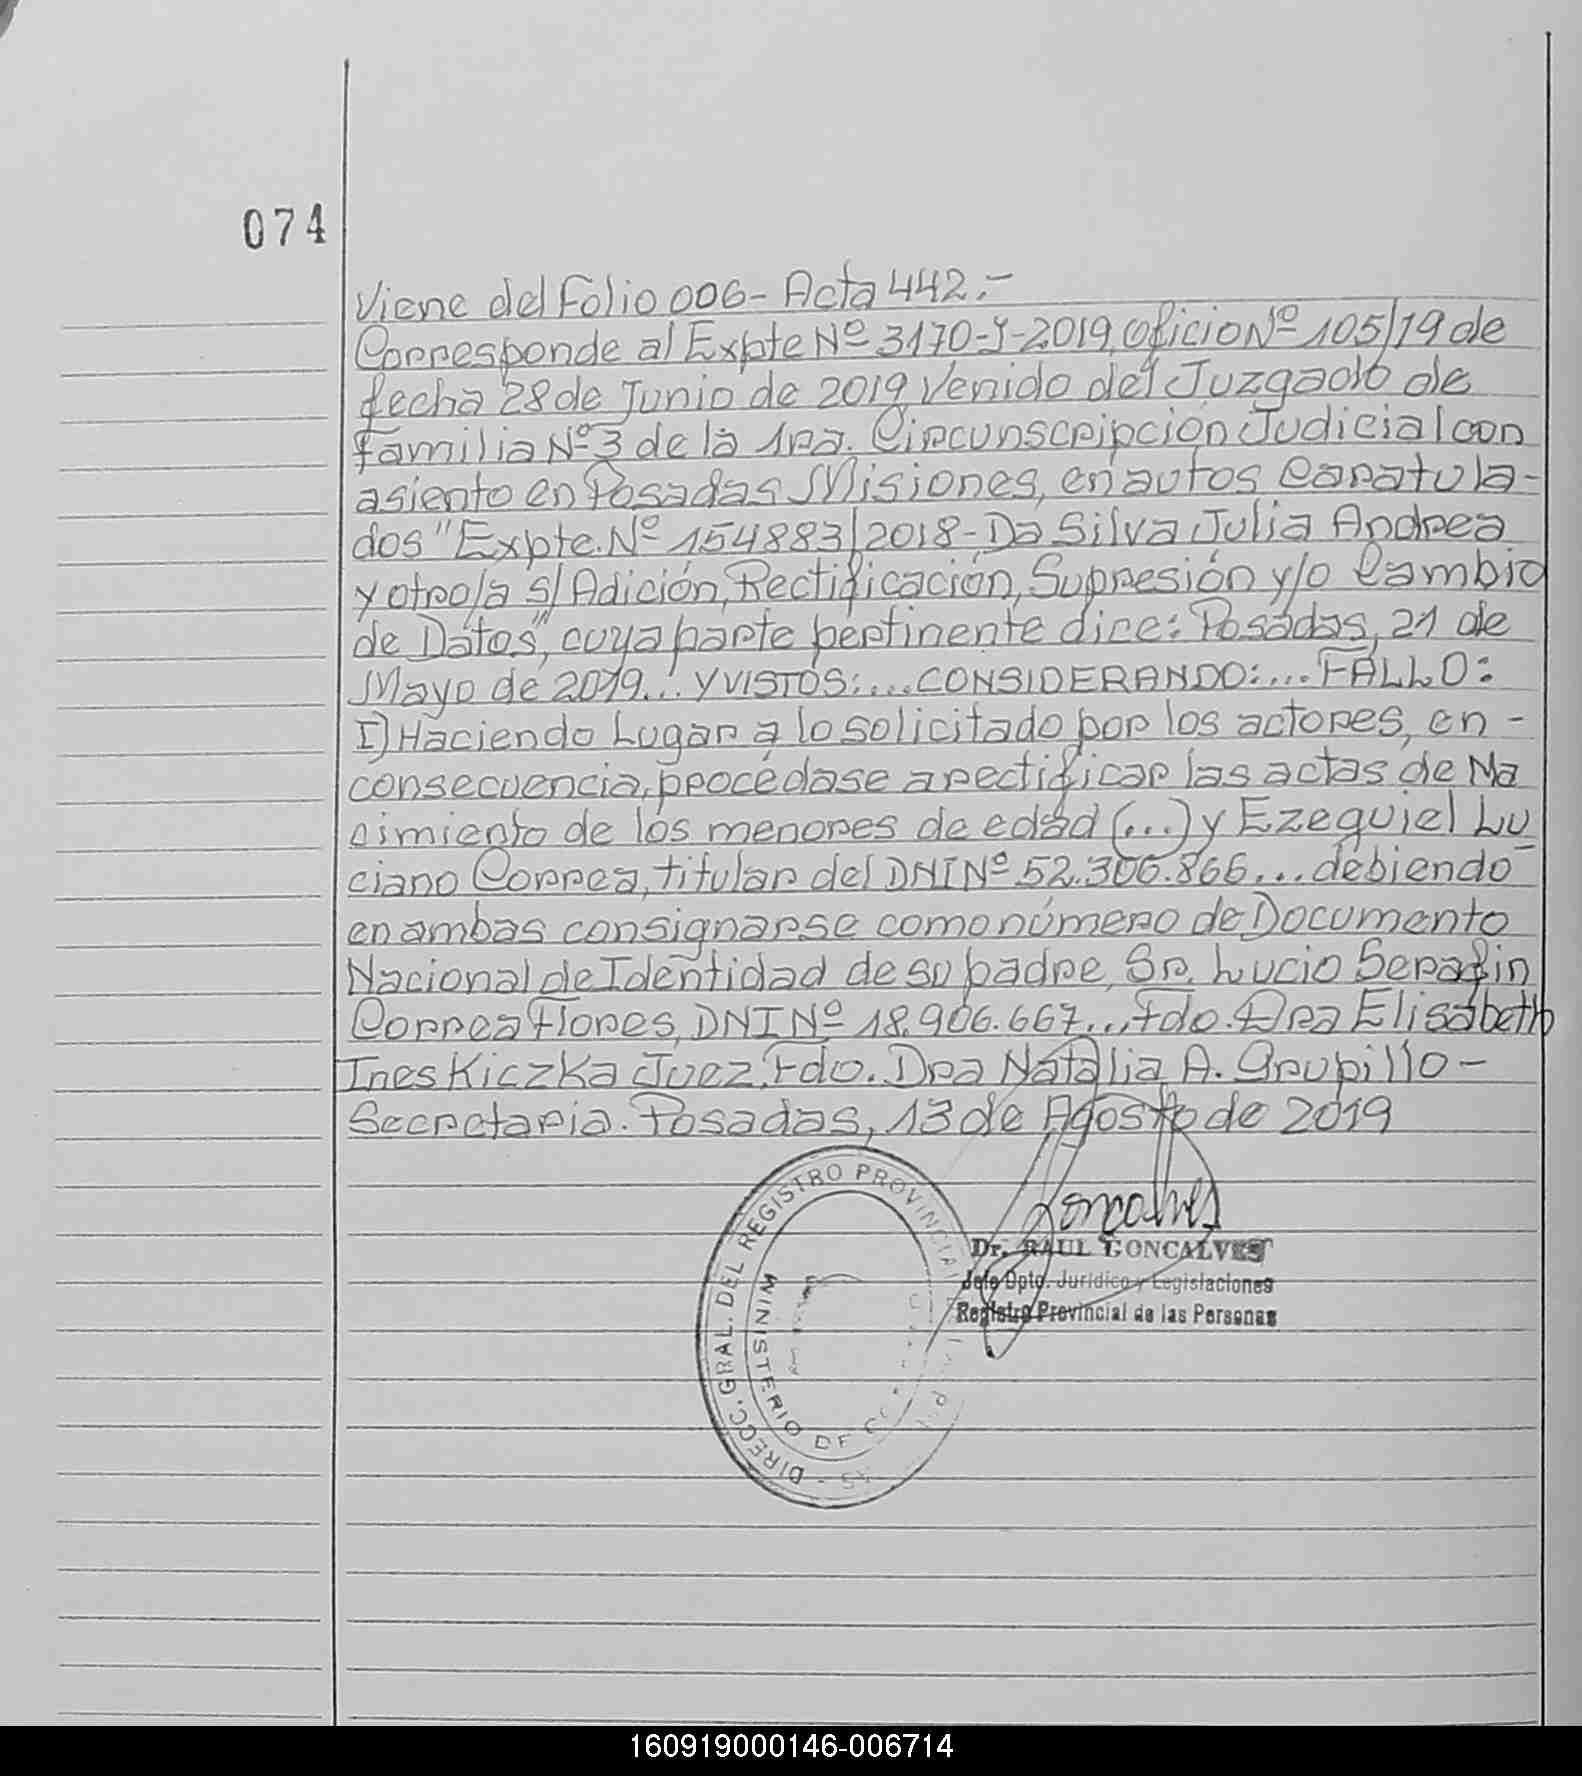 074
Viene del Folio 006- Acta 442.-
Corresponde al Expte Nº 3170-J-2019, Oficio Nº 105/19 de
fecha 28 de Junio de 2019 Venido del Juzgado de
Familia Nº3 de la 1ra. Circunscripción Judicial con
asiento en Posadas Misiones, en autos Caratula-
dos "Expte. Nº 154883/2018-Da Silva Julia Andrea
y otro/a s/Adición, Rectificación, Supresión y/o Cambio
de Datos", cuya parte pertinente dice: Posadas, 21 de
Mayo de 2019... Y VISTOS:... CONSIDERANDO:... FALLO:
I) Haciendo Lugar a lo solicitado por los actores, en-
consecuencia, procédase a rectificar las actas de Na
cimiento de los menores de edad (...) y Ezequiel Lu
ciano Correa, titular del DNI Nº 52.306.866... debiendo
en ambas consignarse como número de Documento
Nacional de Identidad de su padre, Sr. Lucio Serafin
Correa Flores, DNI Nº 18.906.667... Fdo. Dra Elisabeth
Ines Kiczka Juez. Fdo. Dra Natalia A. Grupillo-
Secretaria. Posadas, 13 de Agosto de 2019
Goncalves
Dr. RAUL GONCALVES
Jefe Dpto. Juridico y Legislaciones
Registro Provincial de las Personas
DIRECC. GRAL. DEL REGISTRO PROVINCIAL
MINISTERIO DE
160919000146-006714